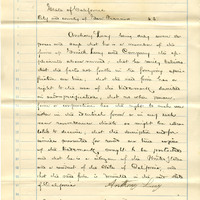 State of California
City and county of San Francisco } S.S.
Anthony Levy being duly sworn de-
poses and says that he is a member of the
firm of Daniel Levy and Company the ap-
plicants above named; that he verily believes
that the facts set forth in the foregoing appli-
cation are true; that the said firm has the
right to the use of the trademark described
in said application; that no other person
firm or corporation has the right to such
use either in the identical form or in any such
near resemblance thereto as might be calcu-
lated to deceive; that the description and fac-
similes presented for record are true copies
of the trademark sought to be protected
and that he is a citizen of the United States
and a resident of the State of California, and
that the said firm is located in the city and State
of California Anthony Levy